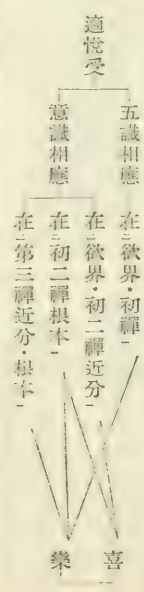 適悅受
五識相應
意識相應
在二欲界・初禪一
在二欲界・初二禪近分一
在二初二禪根本一
在二第三禪近分・根本一
喜
樂